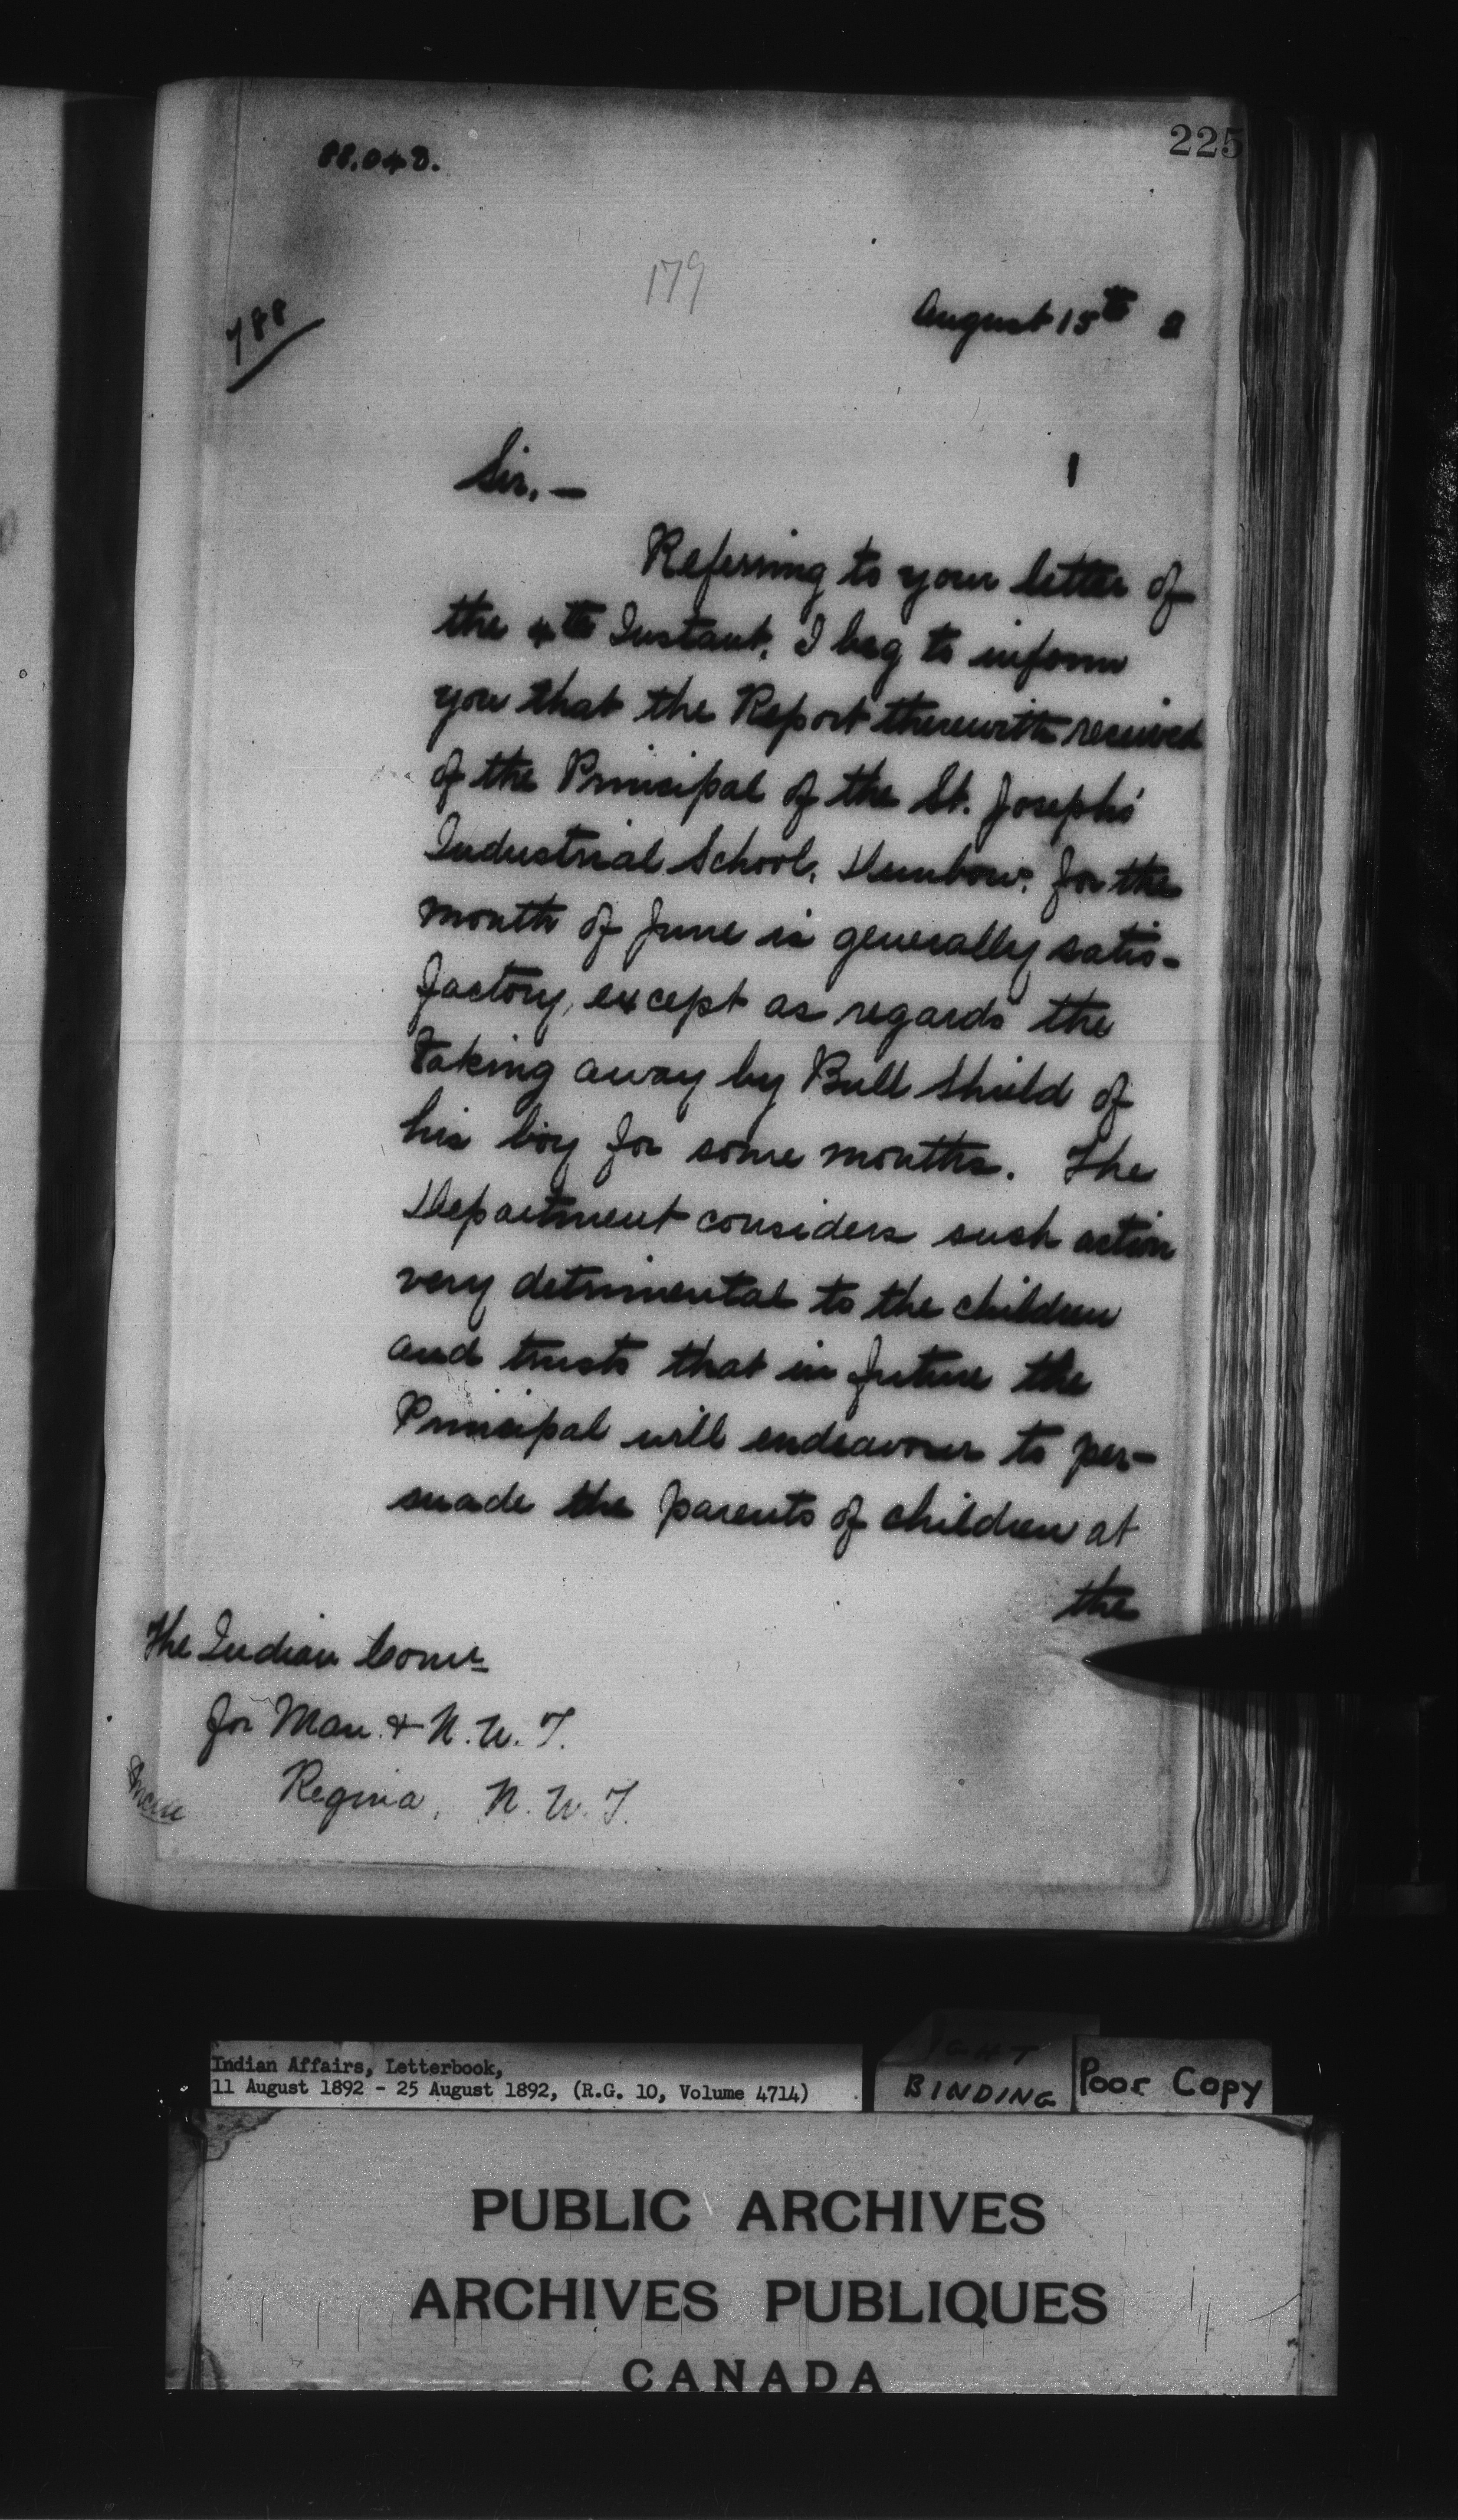 225
88.048.
179
788
August 15th 2
Sir. —
Referring to your letter of
the 4th Instant, I beg to inform
you that the Report therewith received
of the Principal of the St. Joseph's
Industrial School, Dunbow, for the
month of June is generally satis-
factory, except as regards the
taking away by Bull Shield of
his boy for some months. The
Department considers such action
very detrimental to the children
and trusts that in future the
Principal will endeavour to per-
suade the parents of children at
the
The Indian Comr
for Man. & N.W.T.
Regina, N.W.T.
Indian Affairs, Letterbook,
11 August 1892 - 25 August 1892, (R.G. 10, Volume 4714)
BINDING
Poor Copy
PUBLIC ARCHIVES
ARCHIVES PUBLIQUES
CANADA